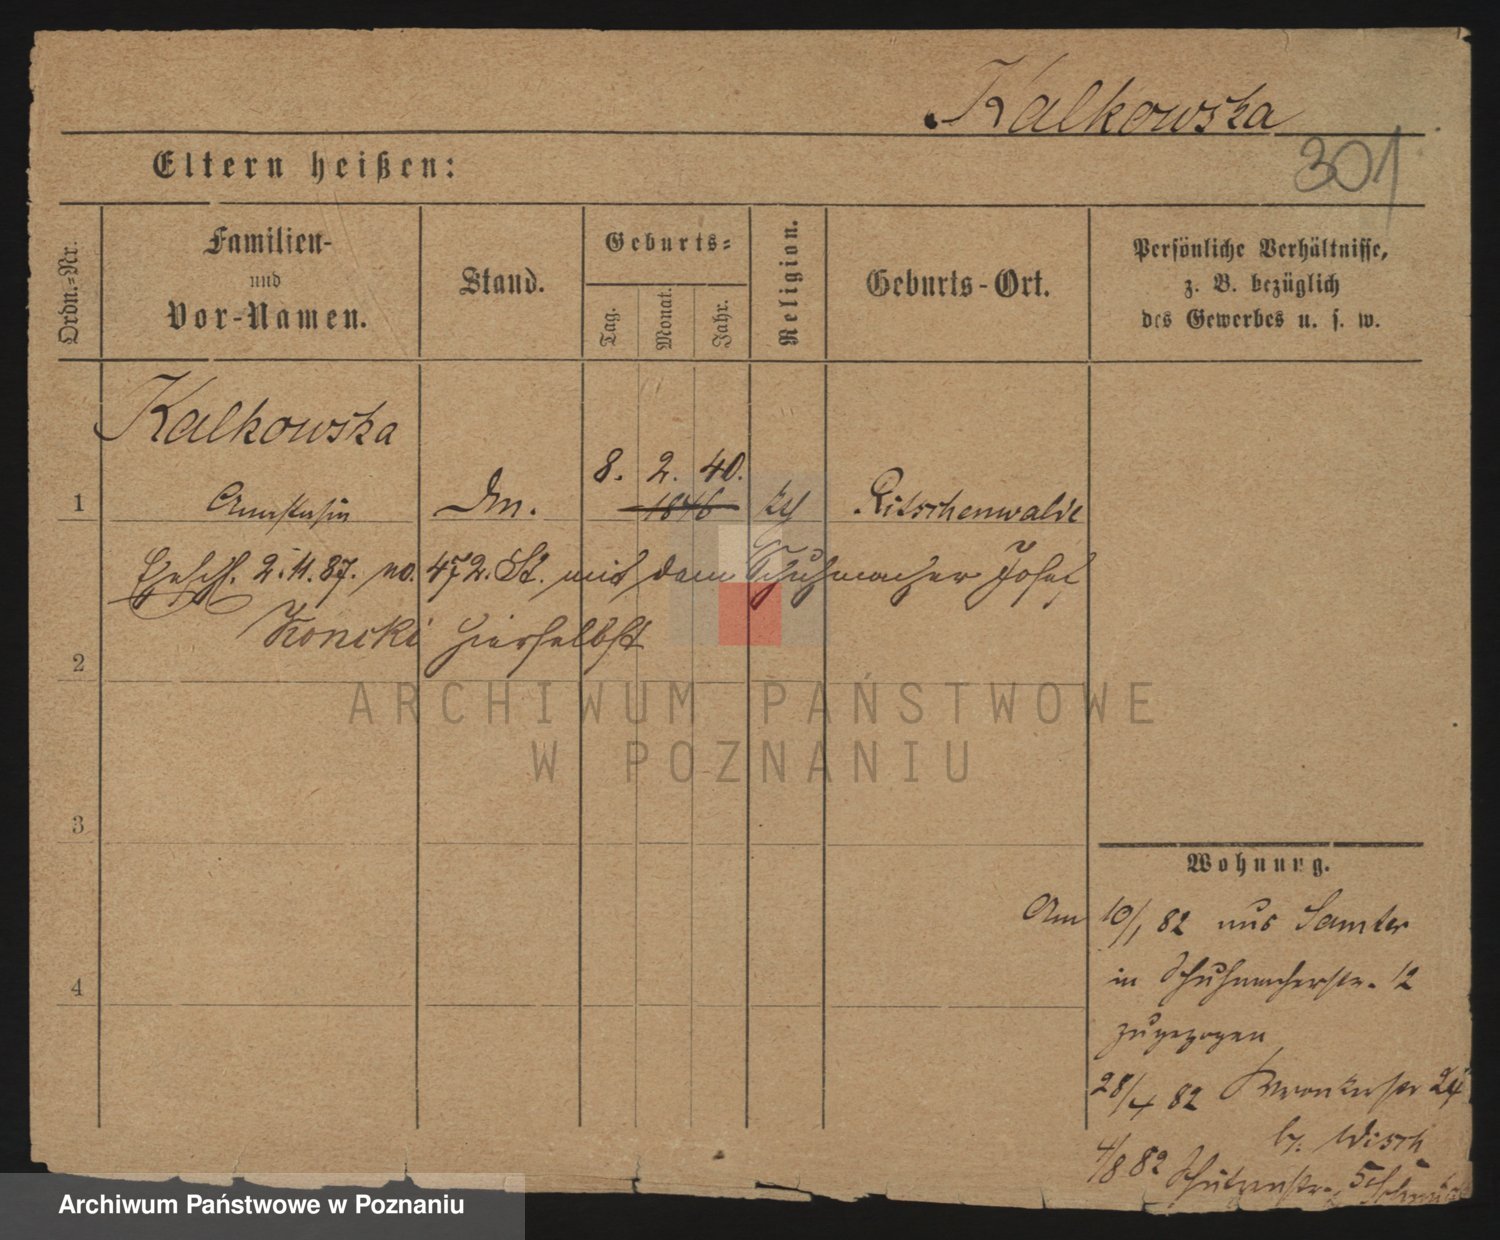 Kalkowska
301
Eltern heißen:
Ordn.-Nr.
Familien-
und
Vor-Namen.
Stand.
Geburts-
Tag.
Monat.
Jahr.
Religion.
Geburts-Ort.
Persönliche Verhältnisse,
z. B. bezüglich
des Gewerbes u. s. w.
Kalkowska
8. 2. 40.
1 Anastasia 1846 Ritschenwalde
Ehesch. 2.11.87. no. 472. St. mit dem Schuhmacher Josef
Konicki hierselbst
2
ARCHIWUM PAŃSTWOWE
W POZNANIU
3
Wohnung.
Am 10/1 82 aus Samter
in Schuhmacherstr. 12
zugezogen
4
28/4 82 Wronkerstr 24
b. Wisch
4/8 82 Schützenstr. 5
Archiwum Państwowe w Poznaniu